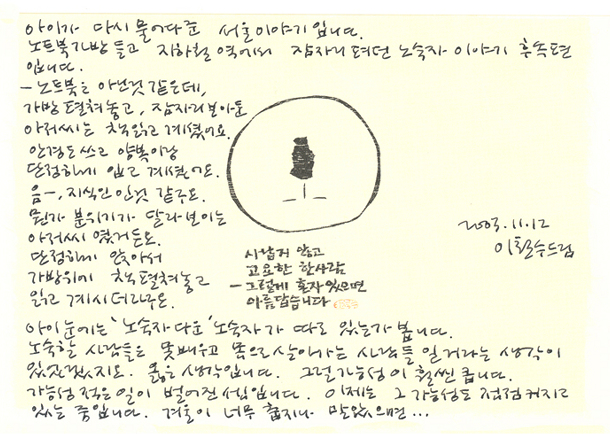 아이가 다시 물어다 준 서울이야기 입니다.
노트북가방 들고 지하철 역에서 잠자리 펴던 노숙자 이야기 후속편
입니다.
- 노트북은 아닌것 같은데,
가방 펼쳐놓고, 잠자리 보아둔
아저씨는 책읽고 계셨어요.
안경도 쓰고 양복이랑
단정하게 입고 계셨어요.
음-, 지식인 인것 같구요.
뭔가 분위기가 달라보이는
아저씨 였거든요.
단정하게 앉아서
가방위에 책 펼쳐놓고
읽고 계시더라구요.
사납지 않고
고요한 한사람
- 그렇게 혼자 있으면
아름답습니다
2003. 11. 12
이철수드림
아이 눈에는 '노숙자 다운' 노숙자가 따로 있는가 봅니다.
노숙할 사람들은 못배우고 몸으로 살아가는 사람들 일 거라는 생각이
있었겠지요. 옳은 생각입니다. 그럴 가능성이 훨씬 큽니다.
가능성 적은 일이 벌어진 셈입니다. 이제는 그 가능성도 점점 커지고
있는 중입니다. 겨울이 너무 춥지나 말았으면...